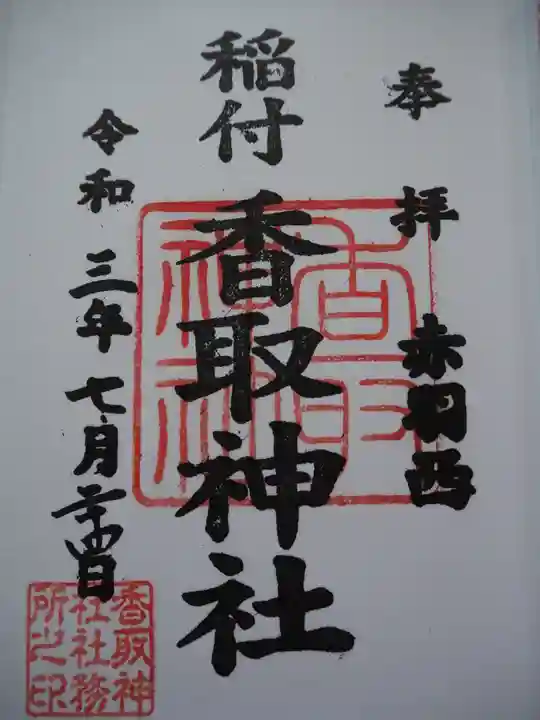 奉拝 赤羽西
稲付 香取神社
令和三年七月二十四日
香取神
社社務
所之印